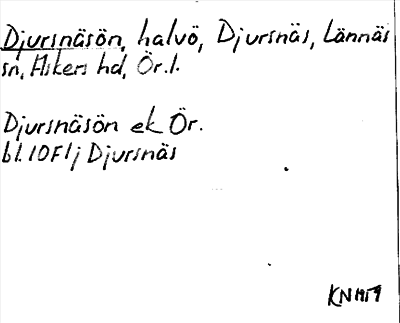 Djursnäsön, halvö, Djursnäs, Lännäs
sn, Askers hd, Ör.l.
Djursnäsön ek Ör.
bl. 10F1j Djursnäs